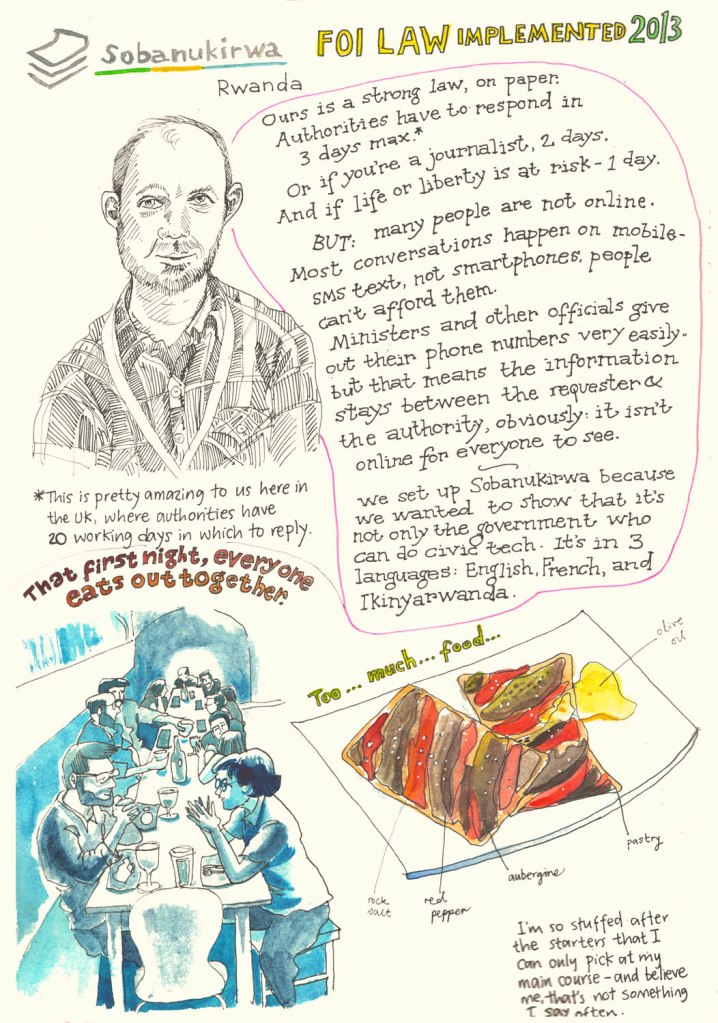 Sobanukirwa
Rwanda
FOI LAW IMPLEMENTED 2013
Ours is a strong law, on paper.
Authorities have to respond in
3 days max.*
Or if you're a journalist, 2 days.
And if life or liberty is at risk - 1 day.
BUT: many people are not online.
Most conversations happen on mobile -
SMS text, not smartphones. people
can't afford them.
Ministers and other officials give
out their phone numbers very easily -
but that means the information
stays between the requester &
the authority, obviously: it isn't
online for everyone to see.
We set up Sobanukirwa because
we wanted to show that it's
not only the government who
can do civic tech. It's in 3
languages: English, French, and
Ikinyarwanda.
*This is pretty amazing to us here in
the UK, where authorities have
20 working days in which to reply.
That first night, everyone
eats out together.
Too... much... food...
olive
oil
pastry
aubergine
red
pepper
rock
salt
I'm so stuffed after
the starters that I
can only pick at my
main course - and believe
me, that's not something
I say often.